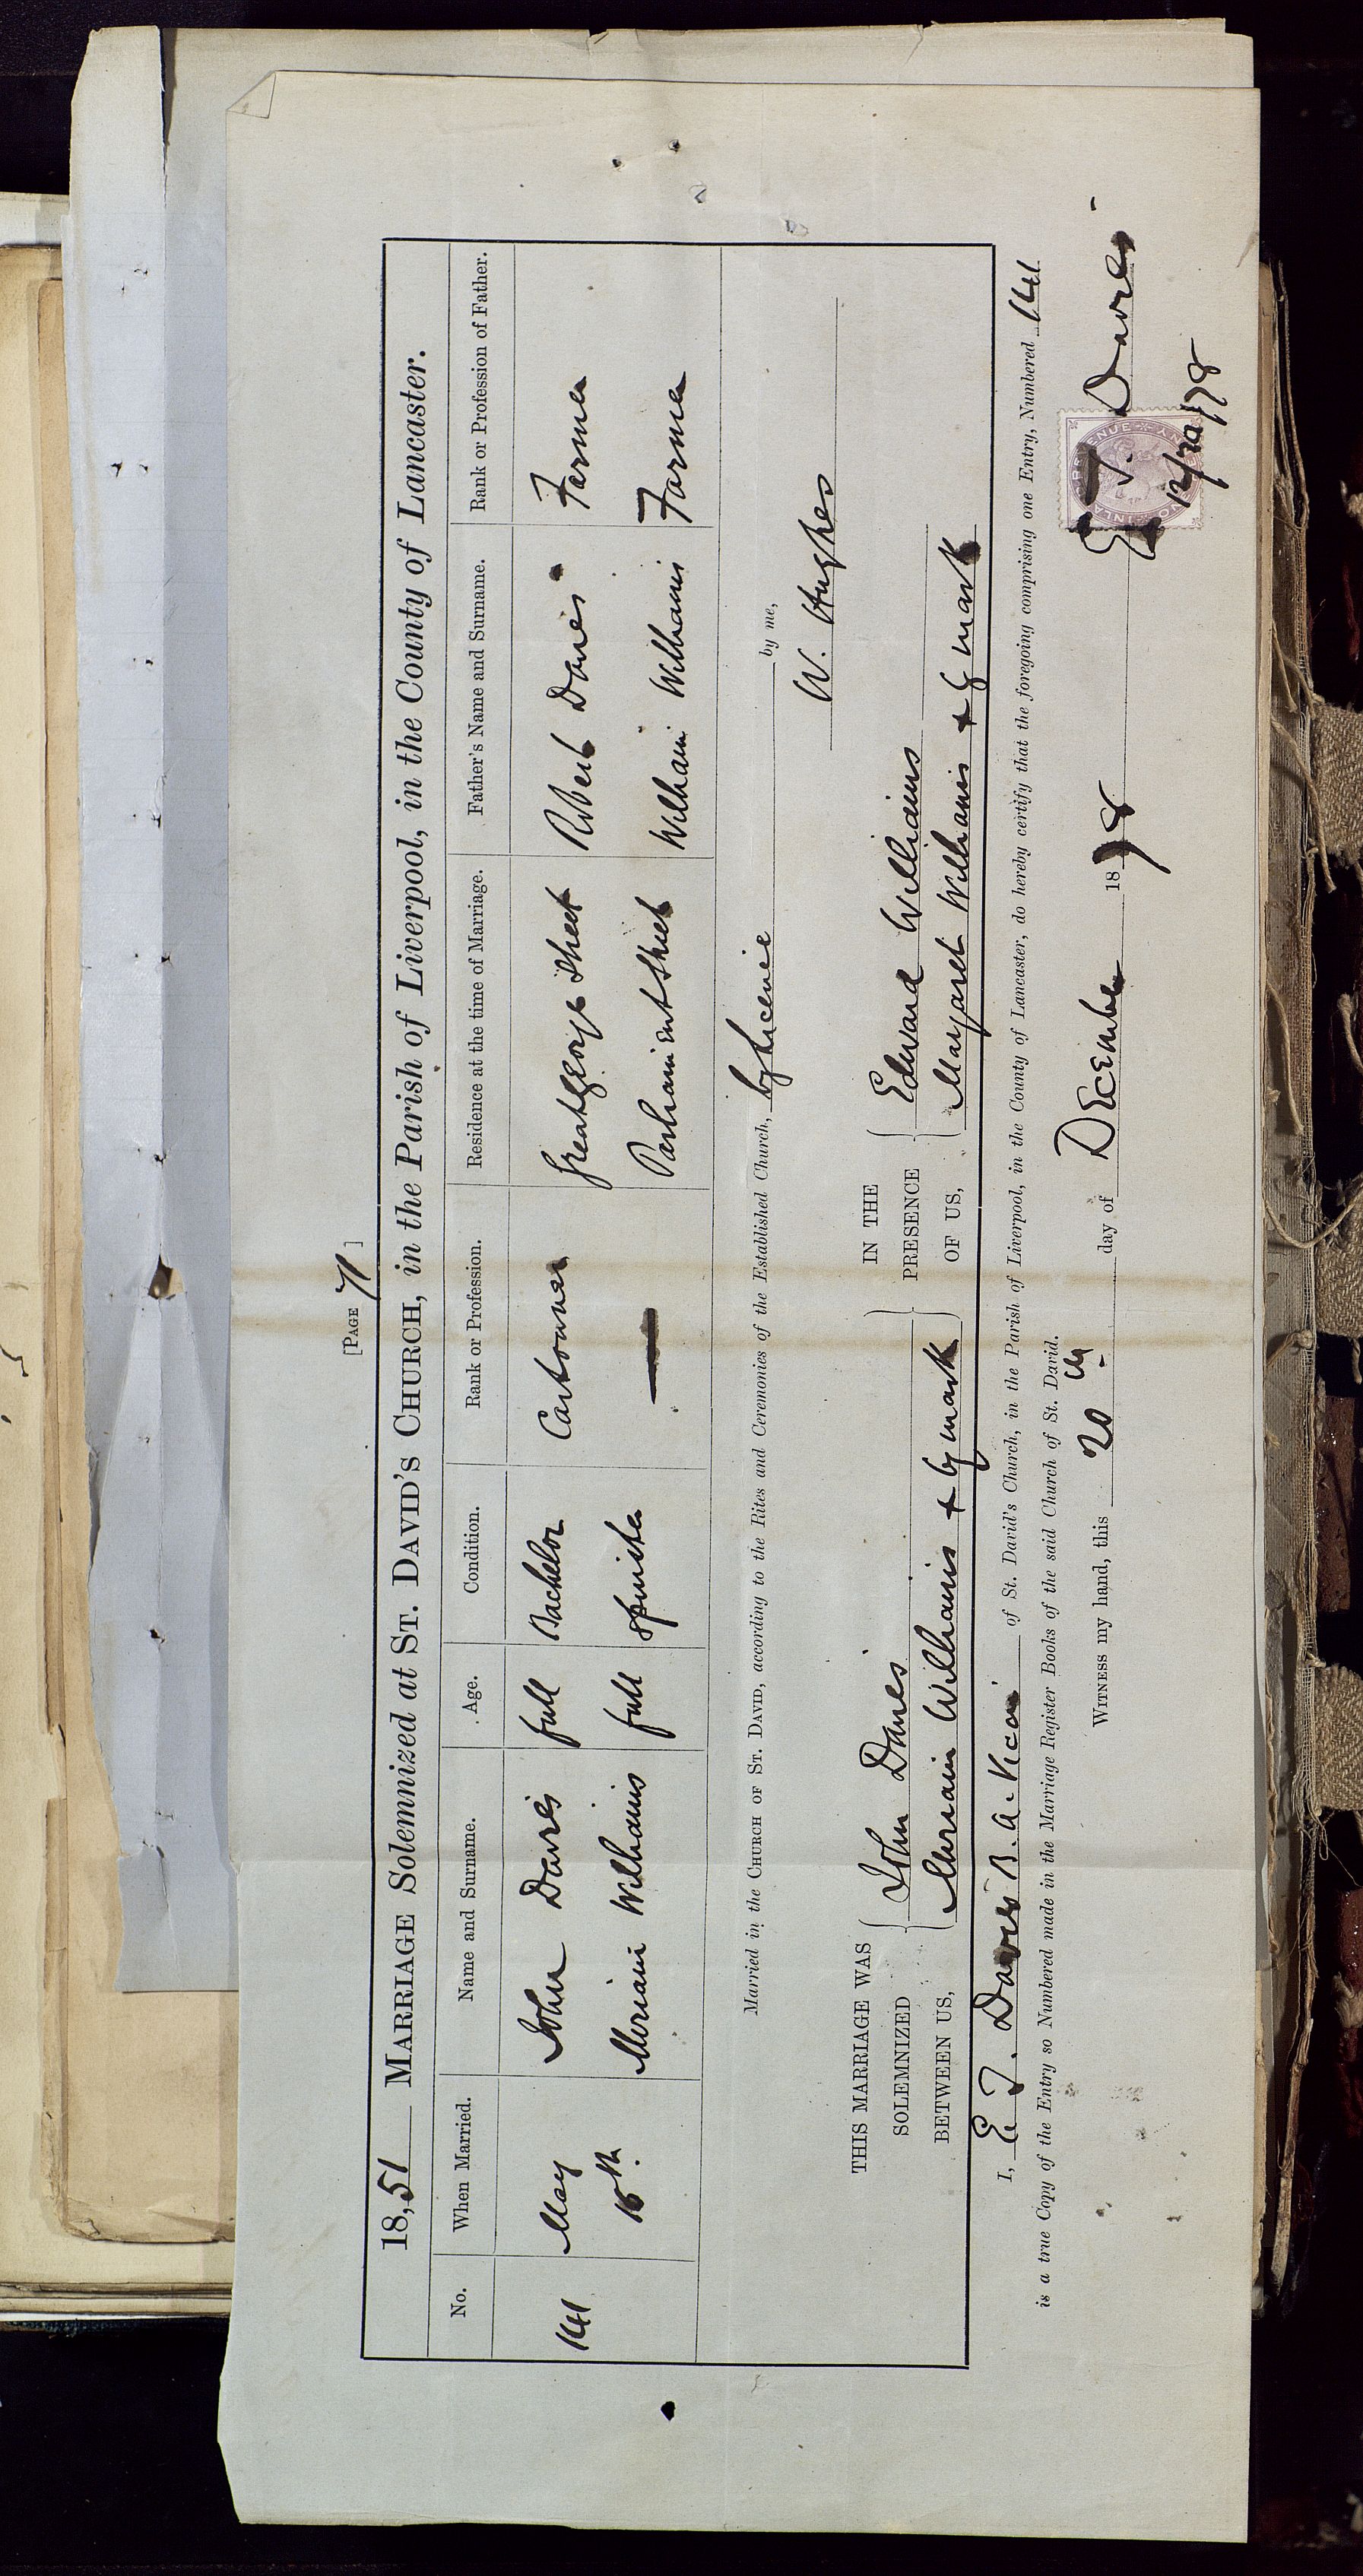 [PAGE 71]
18,51 MARRIAGE Solemnized at ST. DAVID'S CHURCH, in the Parish of Liverpool, in the County of Lancaster.
No. When Married. Name and Surname. Age. Condition. Rank or Profession. Residence at the time of Marriage. Father's Name and Surname. Rank or Profession of Father.
141 May John Davies full Bachelor Cartowner Great George Street Robert Davies Farmer
15th. Miriam Williams full Spinster — Parliament Street William Williams Farmer
Married in the CHURCH OF ST. DAVID, according to the Rites and Ceremonies of the Established Church, by Licence by me,
W. Hughes
THIS MARRIAGE WAS SOLEMNIZED BETWEEN US,
John Davies
Miriam Williams + by mark
IN THE PRESENCE OF US,
Edward Williams
Margaret Williams + by mark
I, E. J. Davies B.A. Vicar of St. David's Church, in the Parish of Liverpool, in the County of Lancaster, do hereby certify that the foregoing comprising one Entry, Numbered 141
is a true Copy of the Entry so Numbered made in the Marriage Register Books of the said Church of St. David.
WITNESS my hand, this 20th day of December 1878 E. J. Davies
12/20/78